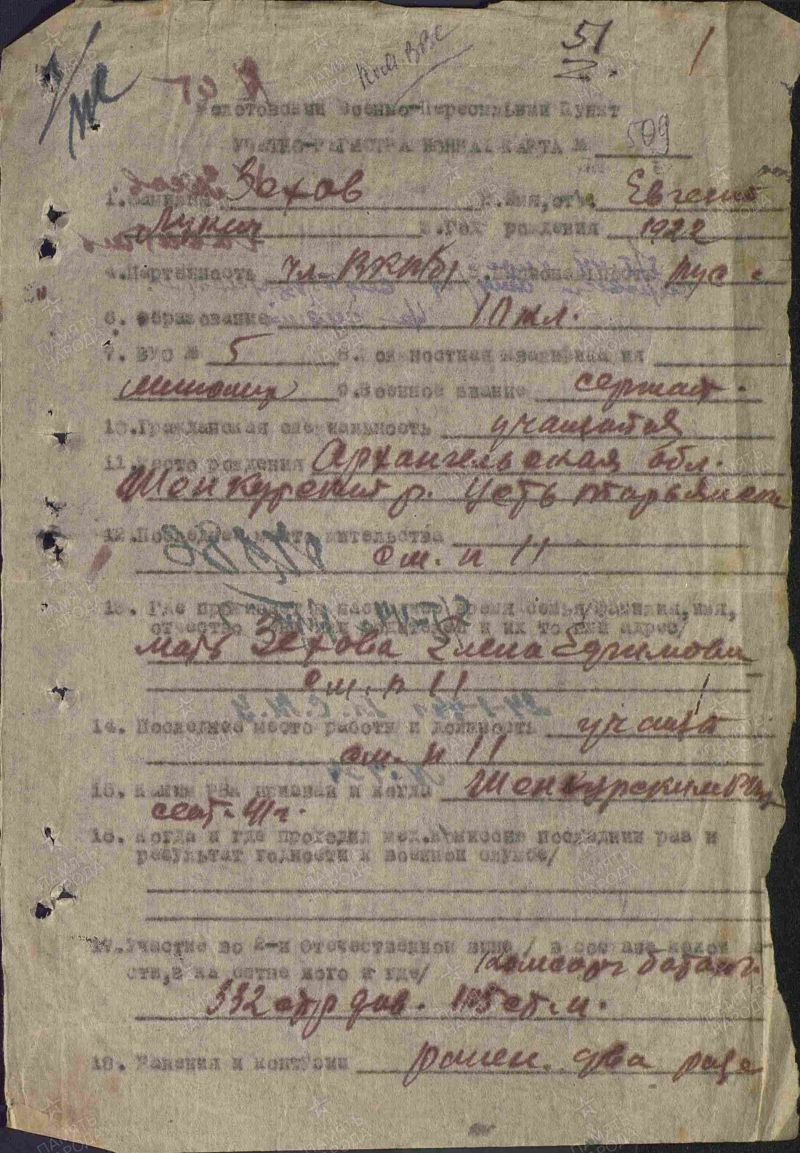 51
1
Военно-Пересыльный Пункт
УЧЕТНО-РЕГИСТРАЦИОННАЯ КАРТА № 509
1. Фамилия Зехов 2. Имя, отч. Евгений
Лукич 3. Год рождения 1922
4. Партийность чл. ВКП(б) рус
6. Образование 10 кл.
7. ВУС № 5 8. Должностная квалификация
9. Военное звание сержант.
10. Гражданская специальность учащийся
11. Место рождения Архангельская обл.
Шенкурский р. Усть
12. Последнее место жительства
см. п 11
13. Где проживает в настоящее время семья/фамилия, имя,
отчество и их точный адрес/
мать Зехова Елена Ефимовна
см. п 11
14. Последнее место работы и должность
см. п 11
15. Каким РВК призван и когда Шенкурским
сент. 41 г.
16. Когда и где проходил мед.комиссию последний раз и
результат годности к военной службе/
17. Участие во 2-й Отечественной войне / в составе какой
части, в качестве кого и где/ комсорг
332 стр див. 1115 ст. п.
18. Ранения и контузии ранен два раза